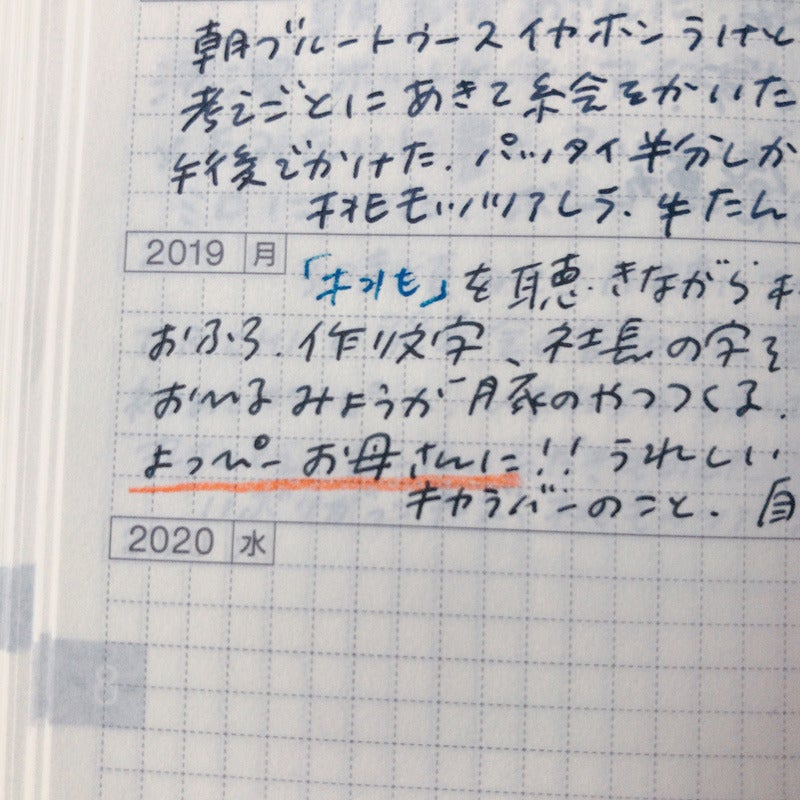 朝ブルートゥースイヤホンうけと
考えごとにあきて絵をかいた
午後でかけた.パッタイ半分しか
牛たん
2019 月
を聴きながら
おふろ.作り文字、社長の字を
みょうが 豚のやつつくる.
よっぺーお母さんに!!うれしい
キャラバーンのこと.自
2020 水
8